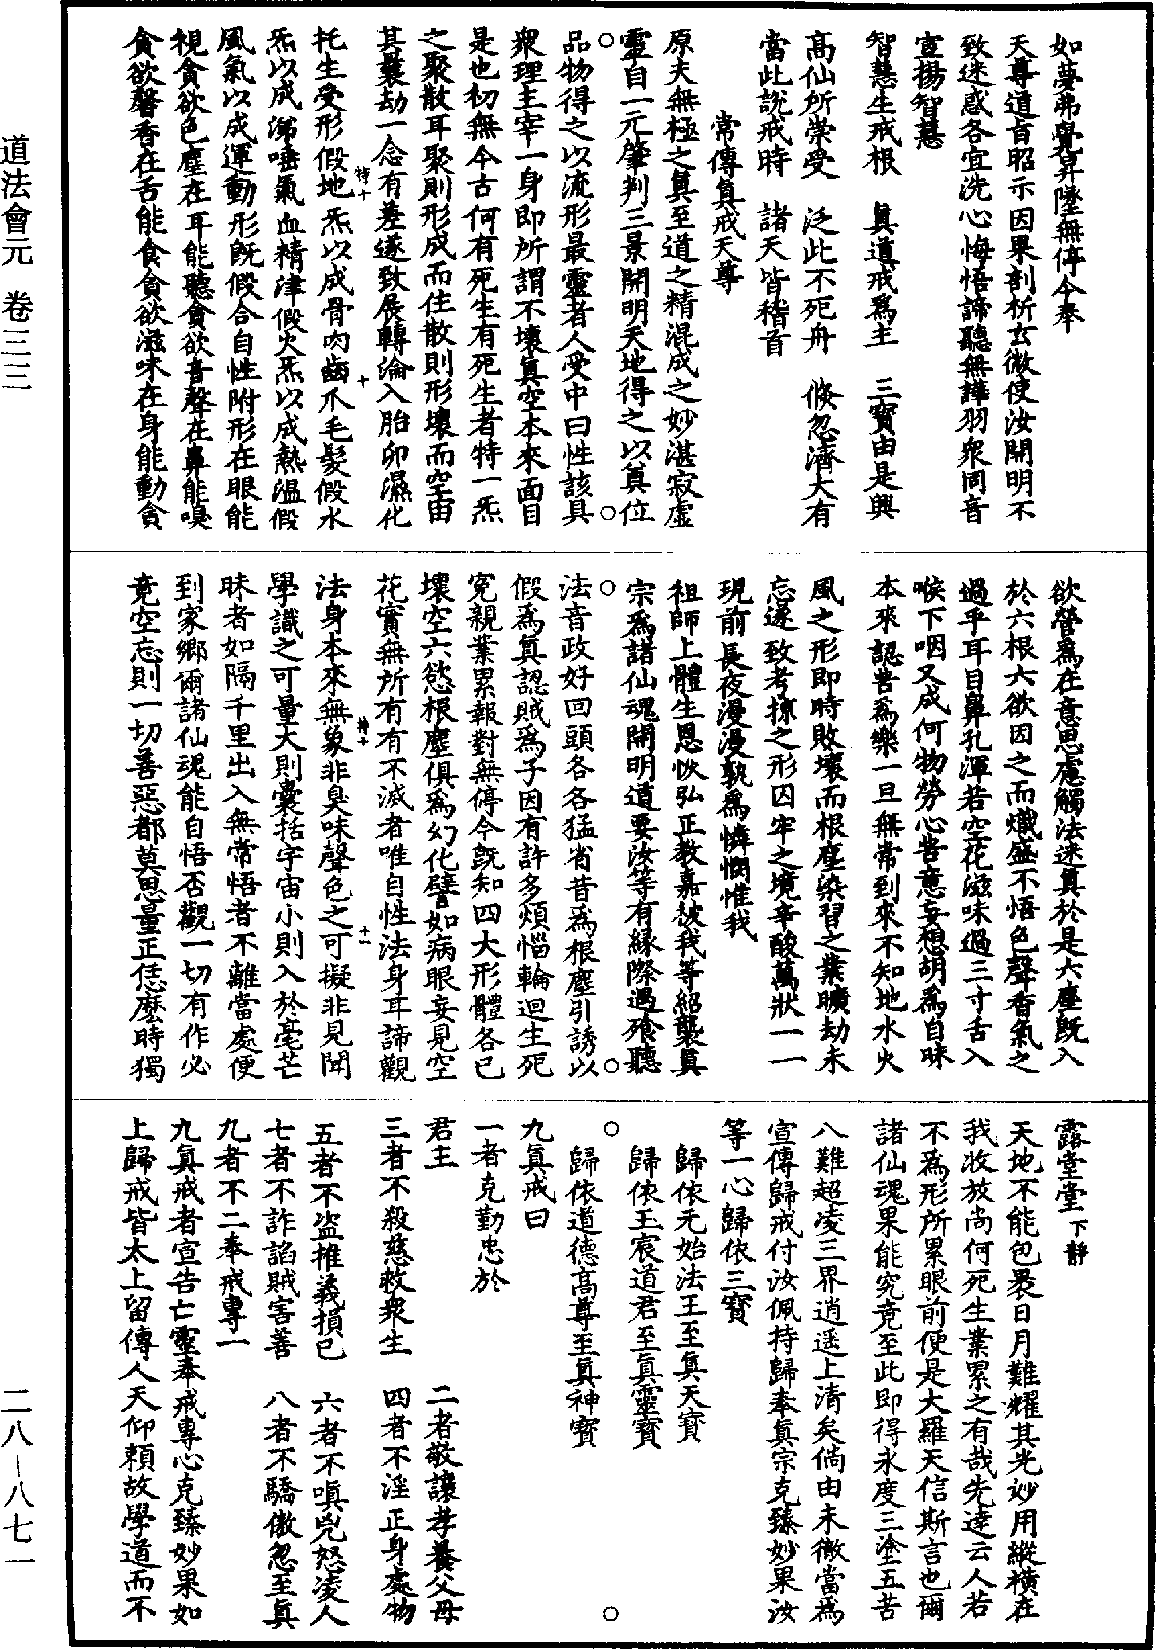 道法會元　卷三三
二八－八七一
如夢弗覺昇墜無停今奉
天尊道旨昭示因果剖析玄微使汝開明不
致迷惑各宜洗心悔悟諦聽無譁羽衆同音
宣揚智慧
智慧生戒根　真道戒爲主　三寶由是興
高仙所崇受　泛此不死舟　倏忽濟大有
當此說戒時　諸天皆稽首
常傳真戒天尊
原夫無極之真至道之精混成之妙湛寂虛
靈自一元肇判三景開明天地得之以奠位
品物得之以流形最靈者人受中曰性該具
衆理主宰一身即所謂不壞真空本來面目
是也初無今古何有死生有死生者特一炁
之聚散耳聚則形成而住散則形壞而空由
其曩劫一念有差遂致展轉淪入胎卵濕化
托生受形假地炁以成骨肉齒爪毛髮假水
炁以成涕唾氣血精津假火炁以成熱溫假
風氣以成運動形旣假合自性附形在眼能
視貪欲色塵在耳能聽貪欲音聲在鼻能嗅
貪欲馨香在舌能食貪欲滋味在身能動貪
欲營爲在意思慮觸法迷真於是六塵旣入
於六根六欲因之而熾盛不悟色聲香氣之
過乎耳目鼻孔渾若空花滋味過三寸舌入
喉下咽又成何物勞心苦意妄想胡爲自昧
本來認苦爲樂一旦無常到來不知地水火
風之形即時敗壞而根塵染習之業曠劫未
忘遂致考掠之形囚牢之境辛酸萬狀一一
現前長夜漫漫孰爲憐憫惟我
祖師上體生恩恢弘正教嘉被我等紹襲真
宗爲諸仙魂開明道要汝等有緣際遇飡聽
法音政好回頭各各猛省昔爲根塵引誘以
假爲真認賊爲子因有許多煩惱輪迴生死
冤親業累報對無停今旣知四大形體各已
壞空六慾根塵俱爲幻化譬如病眼妄見空
花實無所有有不滅者唯自性法身耳諦觀
法身本來無象非臭味聲色之可擬非見聞
學識之可量大則囊括宇宙小則入於毫芒
昧者如隔千里出入無常悟者不離當處便
到家鄉爾諸仙魂能自悟否觀一切有作必
竟空忘則一切善惡都莫思量正恁麼時獨
露堂堂下靜
天地不能包褁日月難耀其光妙用縱橫在
我收放尚何死生業累之有哉先達云人若
不爲形所累眼前便是大羅天信斯言也爾
諸仙魂果能究竟至此即得永度三塗五苦
八難超凌三界逍遥上清矣倘由未徹當爲
宣傳歸戒付汝佩持歸奉真宗克臻妙果汝
等一心歸依三寶
歸依元始法王至真天寶
歸依玉宸道君至真靈寶
歸依道德高尊至真神寶
九真戒曰
一者克勤忠於
君主　二者敬讓孝養父母
三者不殺慈救衆生　四者不淫正身處物
五者不盜推義損已　六者不嗔兇怒凌人
七者不詐諂賊害善　八者不驕傲忽至真
九者不二奉戒專一
九真戒者宣告亡靈奉戒專心克臻妙果如
上歸戒皆太上留傳人天仰賴故學道而不